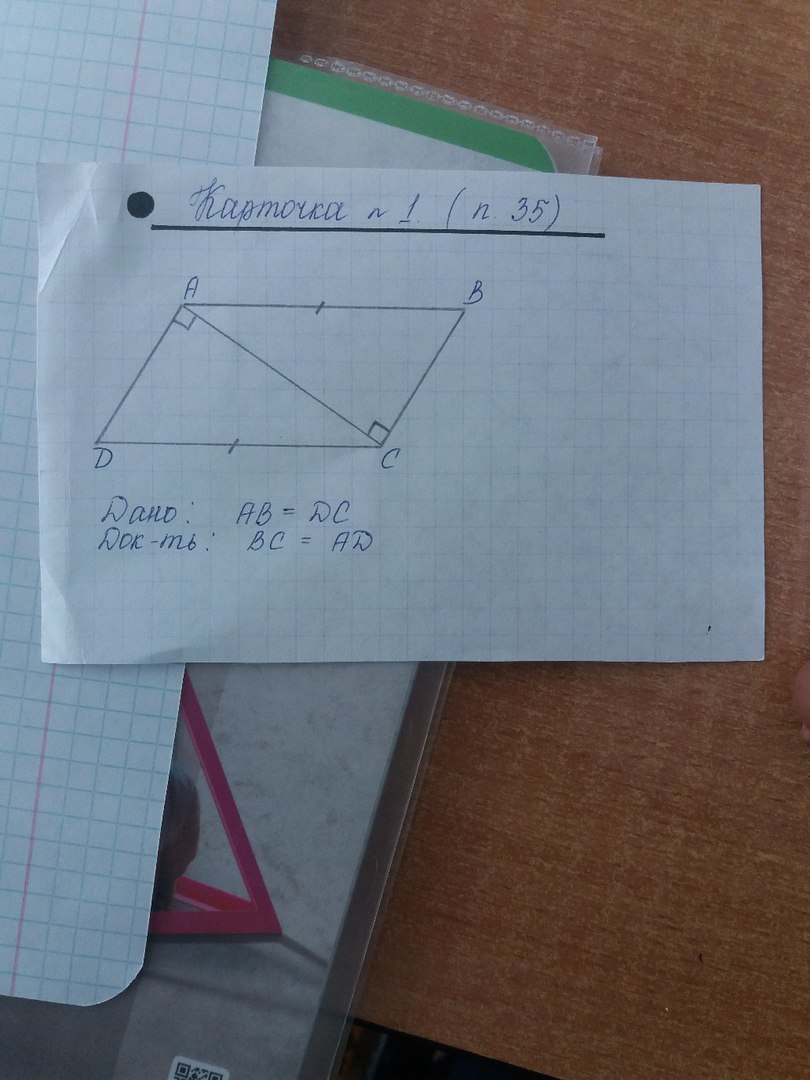 Карточка № 1. (п. 35)
A
B
D
C
Дано: AB = DC
Док-ть: BC = AD